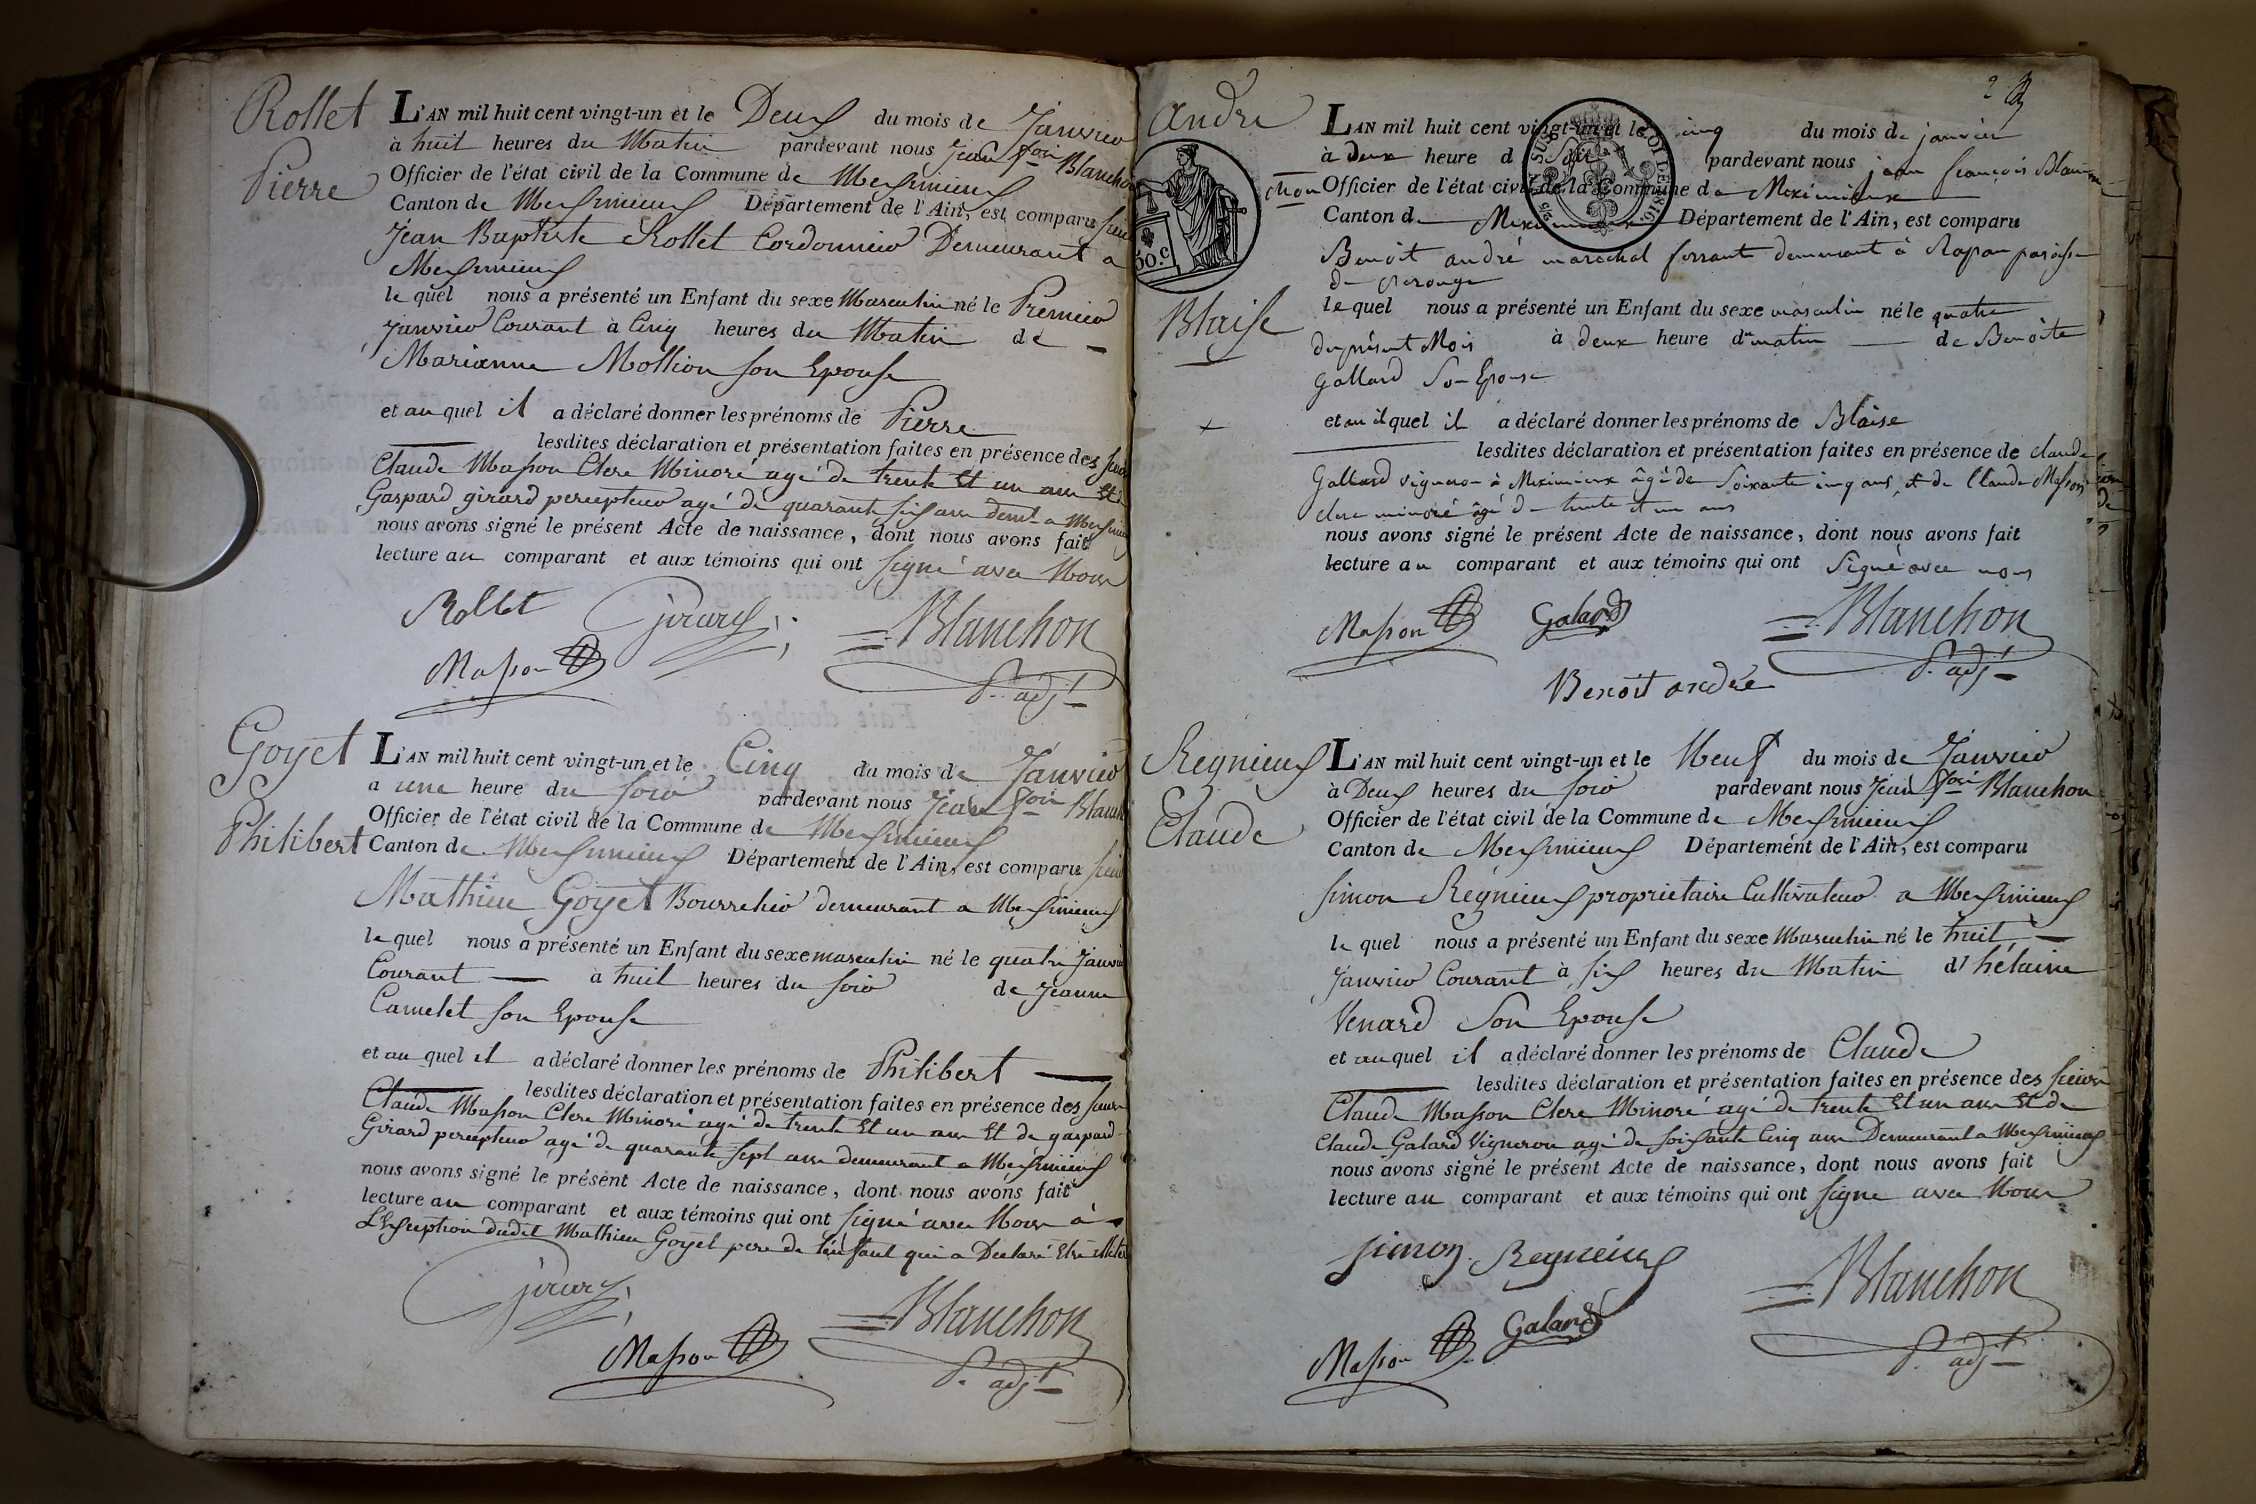 Rollet
Pierre
L'AN mil huit cent vingt-un et le Deux du mois de Janvier
à huit heures du Matin pardevant nous Jean fois Blanchon
Officier de l'état civil de la Commune de Meximieux
Canton de Meximieux Département de l'Ain, est comparu sieur
Jean Baptiste Rollet Cordonnier Demeurant a
Meximieux
le quel nous a présenté un Enfant du sexe Masculin né le Premier
Janvier Courant à Cinq heures du Matin de
Marianne Mollion son Epouse
et au quel il a déclaré donner les prénoms de Pierre
lesdites déclaration et présentation faites en présence des sieurs
Claude Masson Clerc Minoré agé de trente Et un ans Et de
Gaspard girard percepteur agé de quarante six ans demt a Meximieux
nous avons signé le présent Acte de naissance, dont nous avons fait
lecture au comparant et aux témoins qui ont signé avec Nous
Rollet Girard Blanchon
Masson P. adjt
Goyet
Philibert
L'AN mil huit cent vingt-un et le Cinq du mois de Janvier
a une heure du soir pardevant nous Jean fois Blanch
Officier de l'état civil de la Commune de Meximieux
Canton de Meximieux Département de l'Ain, est comparu sieur
Mathieu Goyet Bourrelier demeurant a Meximieux
le quel nous a présenté un Enfant du sexe masculin né le quatre Janvier
Courant à huit heures du soir de Jeanne
Camelet son Epouse
et au quel il a déclaré donner les prénoms de Philibert
lesdites déclaration et présentation faites en présence des sieurs
Claude Masson Clerc Minoré agé de trente Et un ans Et de gaspard
Girard percepteur agé de quarante sept ans demeurant a Meximieux
nous avons signé le présent Acte de naissance, dont nous avons fait
lecture au comparant et aux témoins qui ont signé avec Nous à
L'Exception dudit Mathieu Goyet pere de l'enfant qui a Declaré Etre illetré
Girard Blanchon
Masson P. adjt
2
andré
Blaise
50.c
LAN mil huit cent vingt-un et le cinq du mois de janvier
à deux heure d Soir pardevant nous jean françois Blan
chon Officier de l'état civil de la Commune de Meximieux
Canton d Meximieux Département de l'Ain, est comparu
Benoit andré marechal ferrant demeurant à Rapan paroisse
de Perouge
le quel nous a présenté un Enfant du sexe masculin né le quatre
du présent Mois à deux heure du matin de Benoite
Gallard Son Epouse
et au il quel il a déclaré donner les prénoms de Blaise
lesdites déclaration et présentation faites en présence de claude
Gallard vigneron à Meximieux âgé de Soixante cinq ans, et de Claude Masson
clerc minoré âgé de trente et un ans
nous avons signé le présent Acte de naissance, dont nous avons fait
lecture au comparant et aux témoins qui ont Signé avec nous
Masson Galard Blanchon
Benoit andrée P. adjt
Regnieux
Claude
L'AN mil huit cent vingt-un et le Neuf du mois de Janvier
à Deux heures du soir pardevant nous Jean fois Blanchon
Officier de l'état civil de la Commune de Meximieux
Canton de Meximieux Département de l'Ain, est comparu
Simon Régnieux proprietaire Cultivateur a Meximieux
le quel nous a présenté un Enfant du sexe Masculin né le huit
Janvier Courant à six heures du Matin d'hélaine
Venard Son Epouse
et au quel il a déclaré donner les prénoms de Claude
lesdites déclaration et présentation faites en présence des sieurs
Claude Masson Clerc Minoré agé de trente Et un ans Et de
Claude Galard Vigneron agé de soixante Cinq ans Demeurant a Meximieux
nous avons signé le présent Acte de naissance, dont nous avons fait
lecture au comparant et aux témoins qui ont signé avec Nous
Simon Regnieux
Masson Galard Blanchon
P. adjt